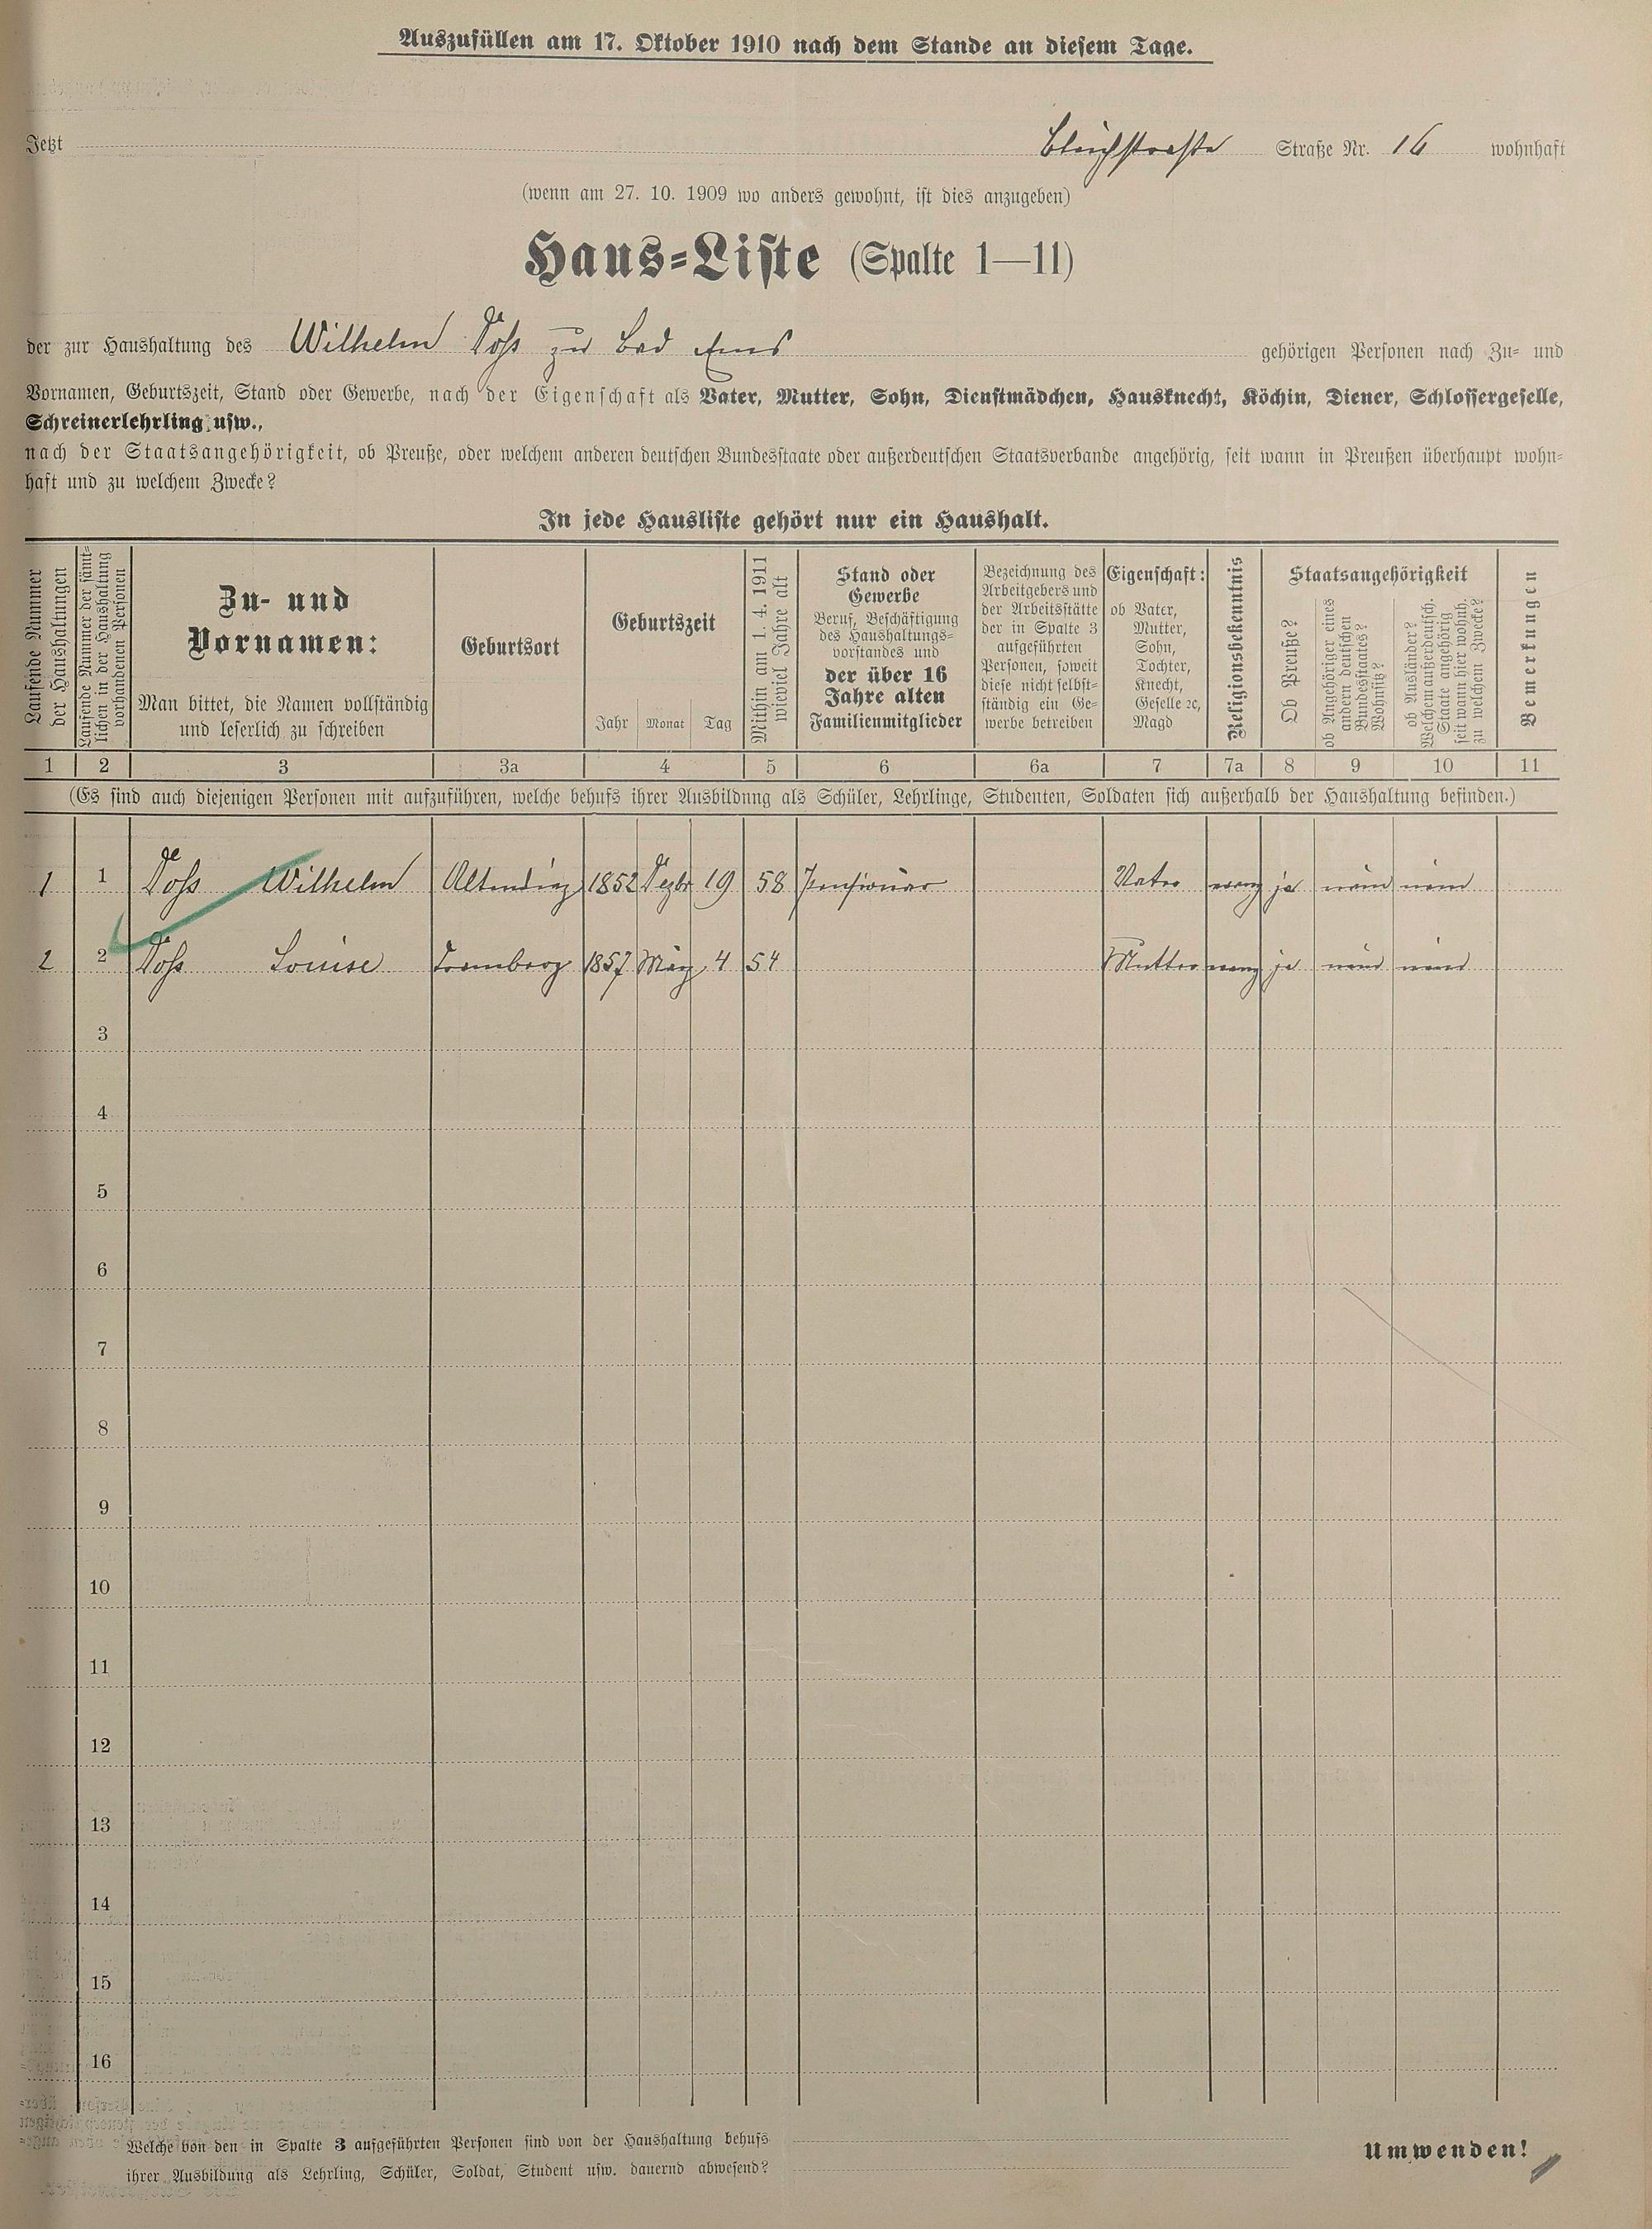 Auszufüllen am 17. Oktober 1910 nach dem Stande an diesem Tage.
Jetzt Bleichstraße Straße Nr. 16 wohnhaft
(wenn am 27. 10. 1909 wo anders gewohnt, ist dies anzugeben)
Haus-Liste (Spalte 1—11)
der zur Haushaltung des Wilhelm Voß zu Bad Ems gehörigen Personen nach Zu- und
Vornamen, Geburtszeit, Stand oder Gewerbe, nach der Eigenschaft als Vater, Mutter, Sohn, Dienstmädchen, Hausknecht, Köchin, Diener, Schlossergeselle,
Schreinerlehrling usw.,
nach der Staatsangehörigkeit, ob Preuße, oder welchem anderen deutschen Bundesstaate oder außerdeutschen Staatsverbande angehörig, seit wann in Preußen überhaupt wohn-
haft und zu welchem Zwecke?
In jede Hausliste gehört nur ein Haushalt.
Laufende Nummer
der Haushaltungen
Laufende Nummer der sämt-
lichen in der Haushaltung
vorhandenen Personen
Zu- und
Vornamen:
Man bittet, die Namen vollständig
und leserlich zu schreiben
Geburtsort
Geburtszeit
Jahr Monat Tag
Mithin am 1. 4. 1911
wieviel Jahre alt
Stand oder
Gewerbe
Beruf, Beschäftigung
des Haushaltungs-
vorstandes und
der über 16
Jahre alten
Familienmitglieder
Bezeichnung des
Arbeitgebers und
der Arbeitsstätte
der in Spalte 3
aufgeführten
Personen, soweit
diese nicht selbst-
ständig ein Ge-
werbe betreiben
Eigenschaft:
ob Vater,
Mutter,
Sohn,
Tochter,
Knecht,
Geselle ꝛc,
Magd
Religionsbekenntnis
Staatsangehörigkeit
Ob Preuße?
ob Angehöriger eines
andern deutschen
Bundesstaates?
Wohnsitz?
ob Ausländer?
Welchem außerdeutsch.
Staate angehörig
seit wann hier wohnh.
zu welchem Zwecke?
Bemerkungen
1 2 3 3a 4 5 6 6a 7 7a 8 9 10 11
(Es sind auch diejenigen Personen mit aufzuführen, welche behufs ihrer Ausbildung als Schüler, Lehrlinge, Studenten, Soldaten sich außerhalb der Haushaltung befinden.)
1 1 Voß Wilhelm 1852 Dezbr 19 58 Pensionär Vater evang ja nein nein
2 2 Voß Louise 1857 März 4 54 Mutter evang ja nein nein
3
4
5
6
7
8
9
10
11
12
13
14
15
16
Welche von den in Spalte 3 aufgeführten Personen sind von der Haushaltung behufs
ihrer Ausbildung als Lehrling, Schüler, Soldat, Student usw. dauernd abwesend?
Umwenden!